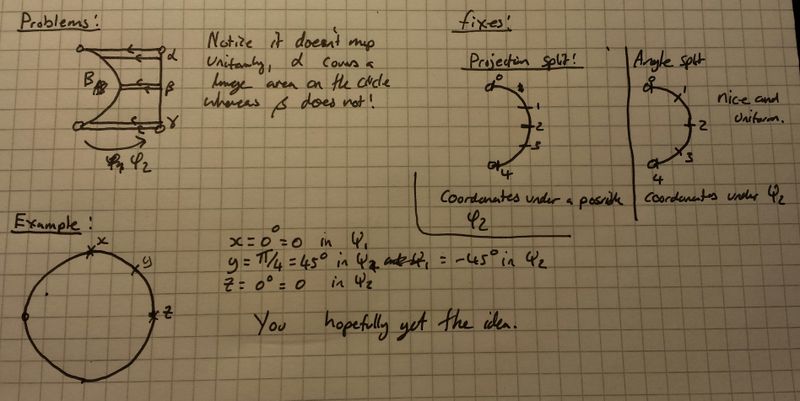 Problems:
α
B
β
γ
φ₂
Notice it doesn't map
Uniformly, α covers a
huge area on the circle
whereas β does not!
fixes:
Projection split!
0
1
2
3
4
Coordenates under a possible
φ₂
Angle split
0
1
2
3
4
nice and
uniform.
Coordenates under φ₂
Example:
x
y
z
x = 0° = 0 in φ₁
y = π/4 = 45° in φ₁ = -45° in φ₂
z = 0° = 0 in φ₂
You hopefully get the idea.